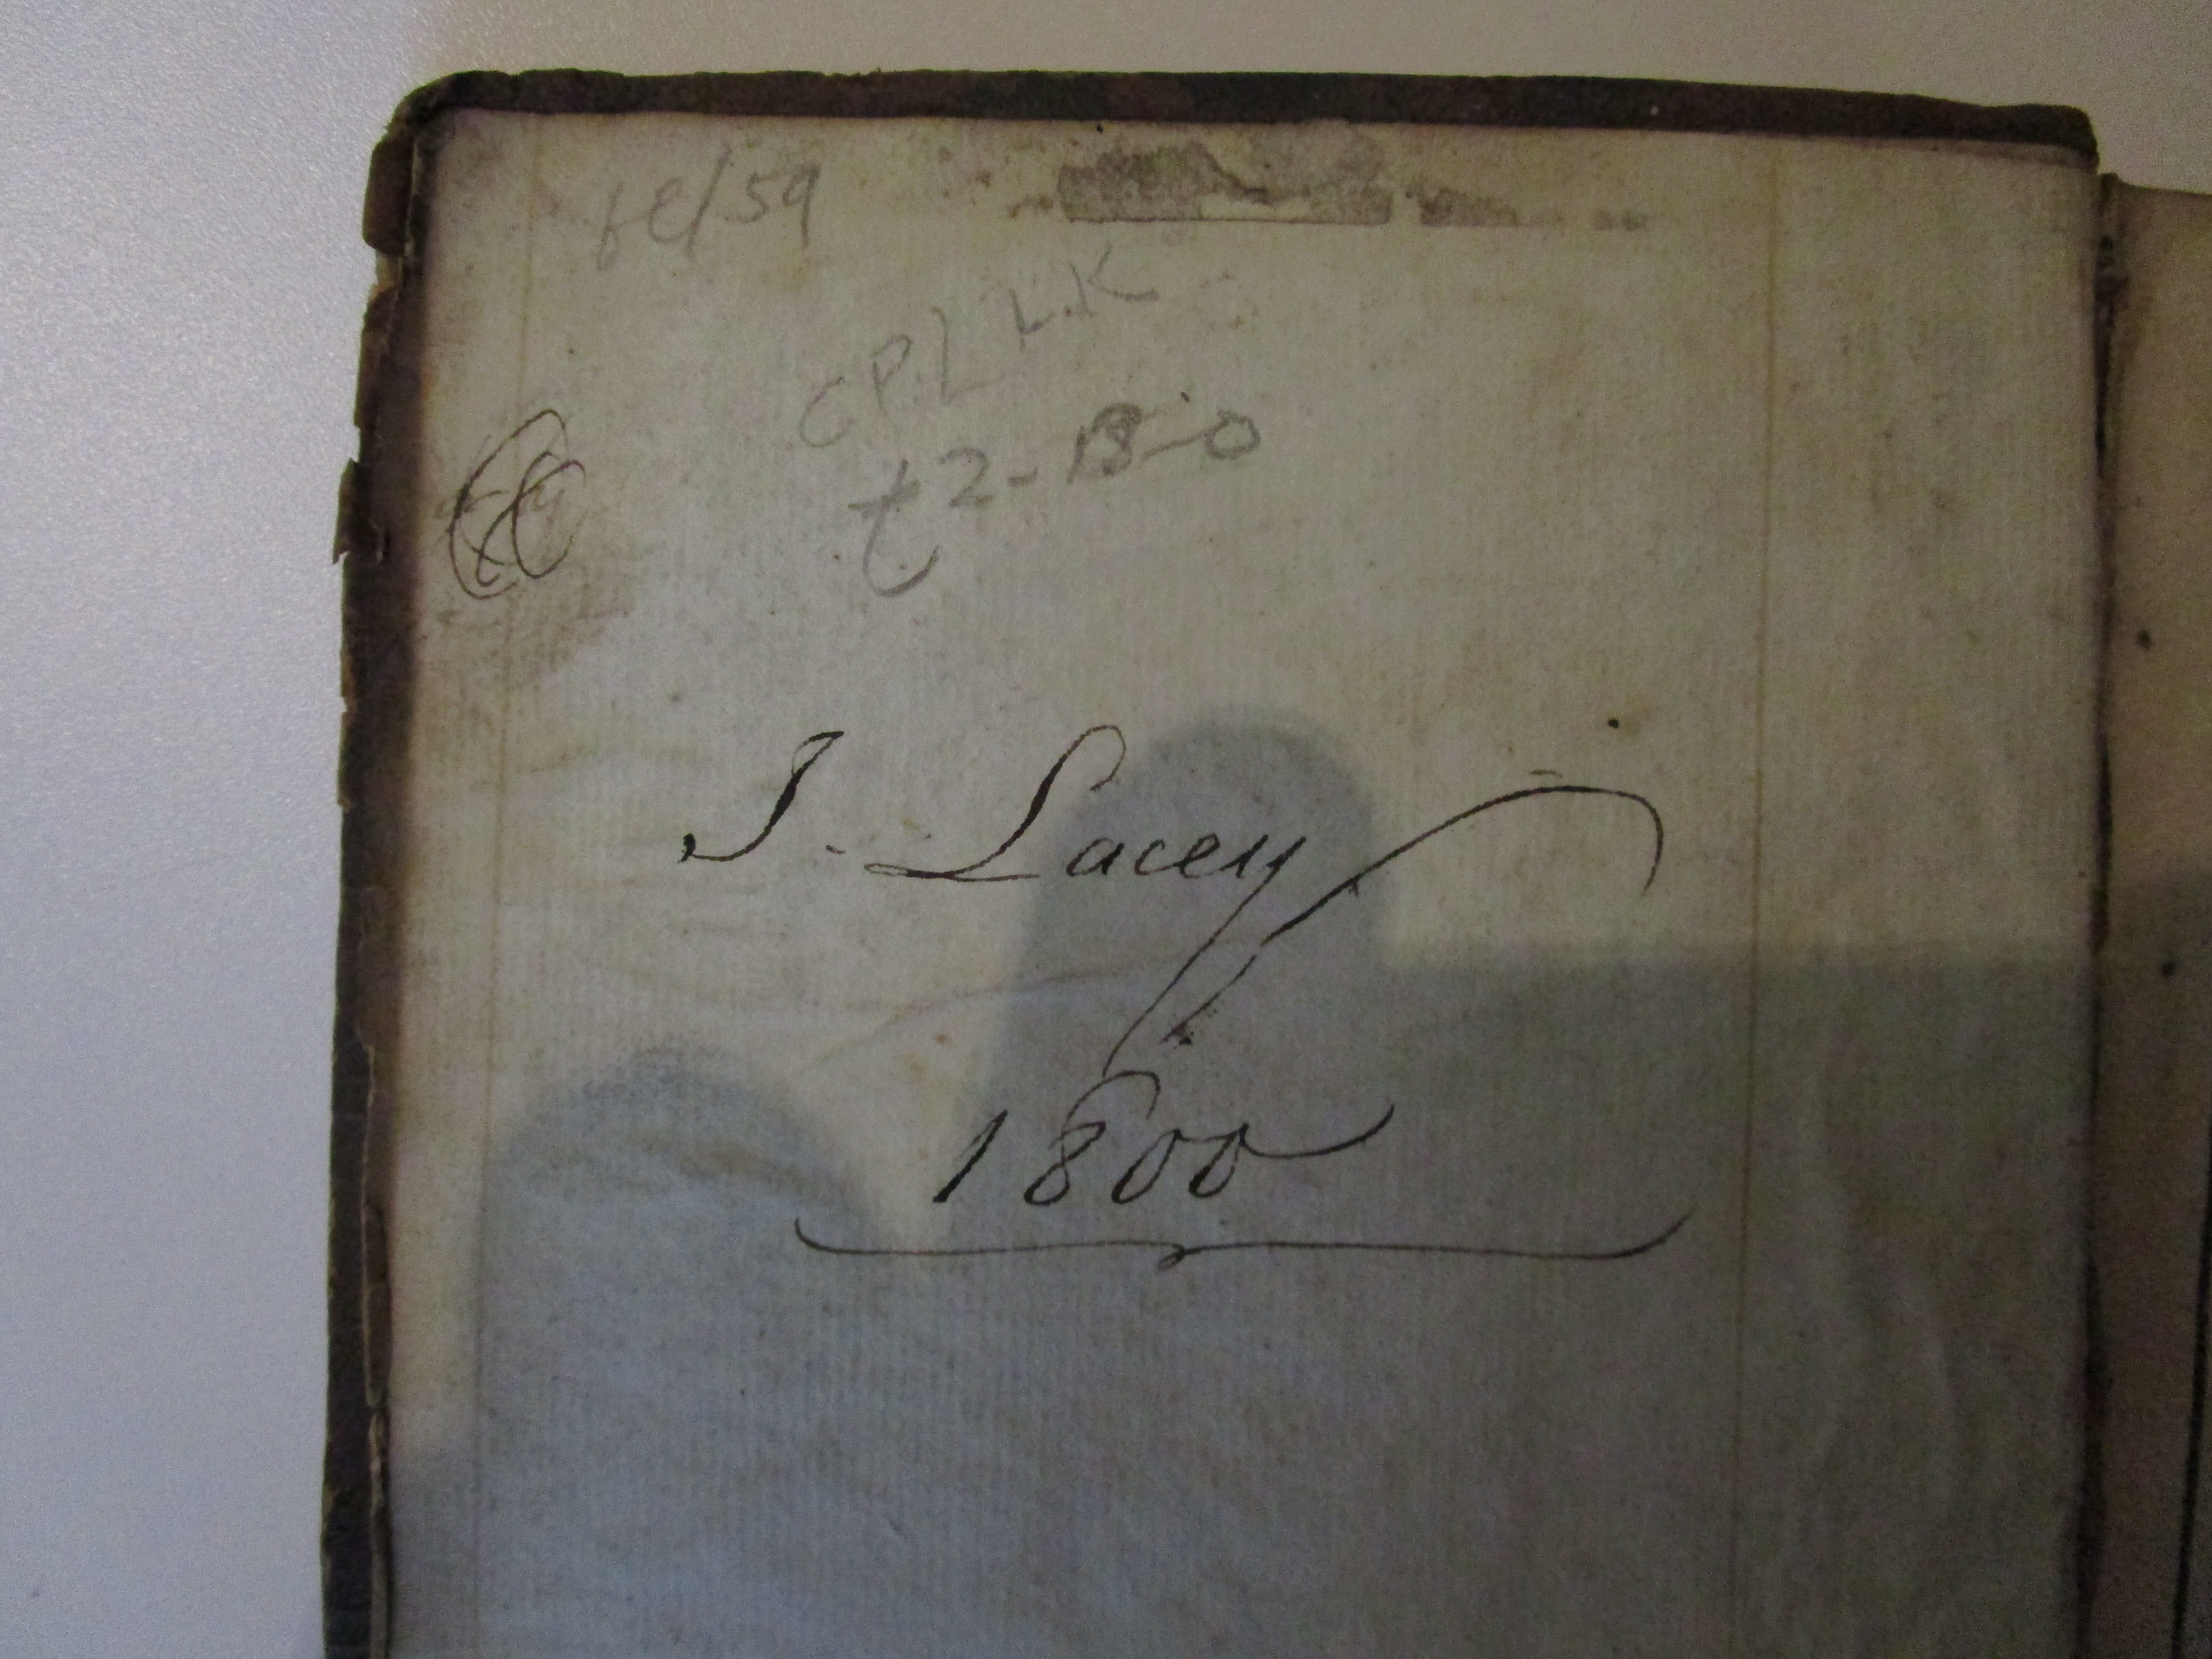 fe/59
CPL L.K
£2-18-0
J. Lacey
1800